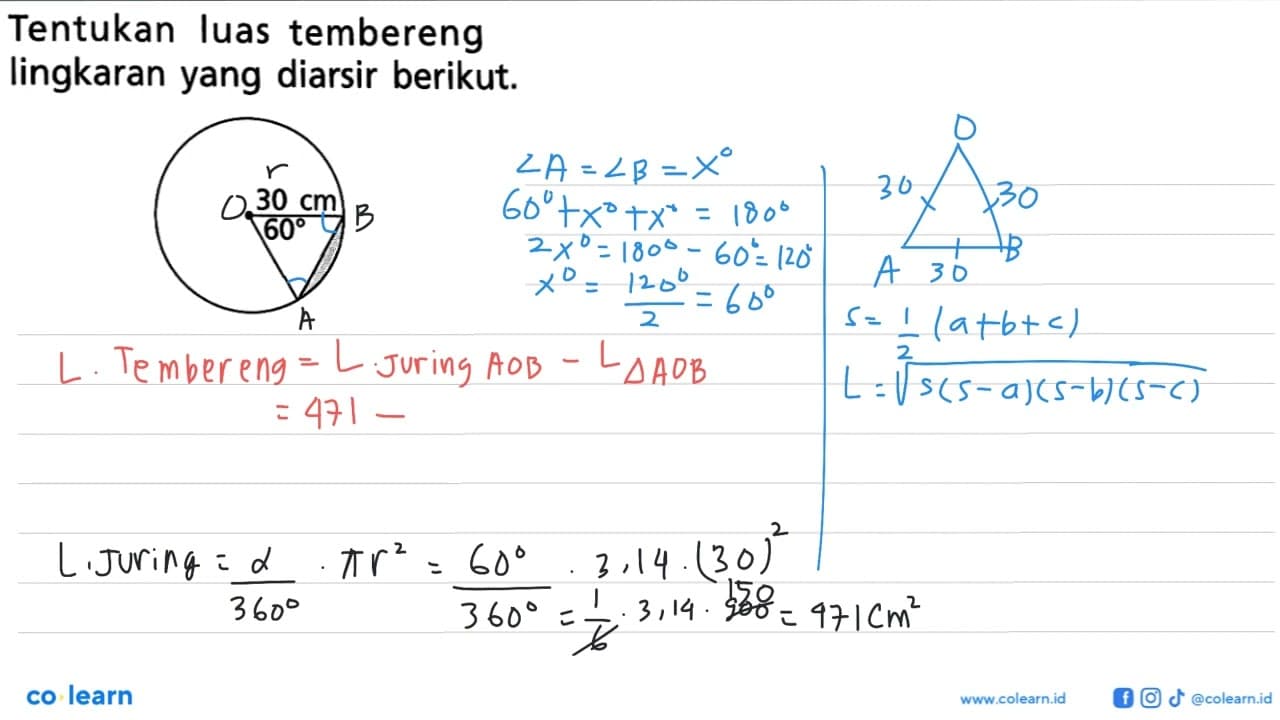 Tentukan luas tembereng
lingkaran yang diarsir berikut.
r
O 30 cm B
60°
A
∠A = ∠B = x°
60° + x° + x° = 180°
2x° = 180° - 60° = 120°
x° = 120°/2 = 60°
O
30 30
A 30 B
s = 1/2 (a+b+c)
L = √s(s-a)(s-b)(s-c)
L. Tembereng = L. Juring AOB - L△AOB
= 471 -
L. Juring = α/360° . πr² = 60°/360° . 3,14 . (30)²
= 1/6 . 3,14 . 900 150 = 471 cm²
co learn
www.colearn.id @colearn.id